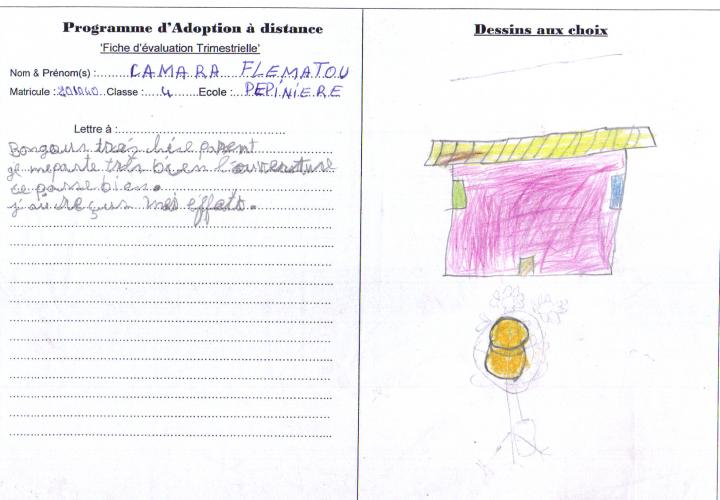 Programme d'Adoption à distance
'Fiche d'évaluation Trimestrielle'
Nom & Prénom(s) : CAMARA FLEMATOU
Matricule : 201040 Classe : 4 Ecole : PEPINIERE
Lettre à :
Bongours trés chére parent
ge me porte trés bien l'ouverature
ce passe bien.
j'ai reçus mes effats.
Dessins aux choix